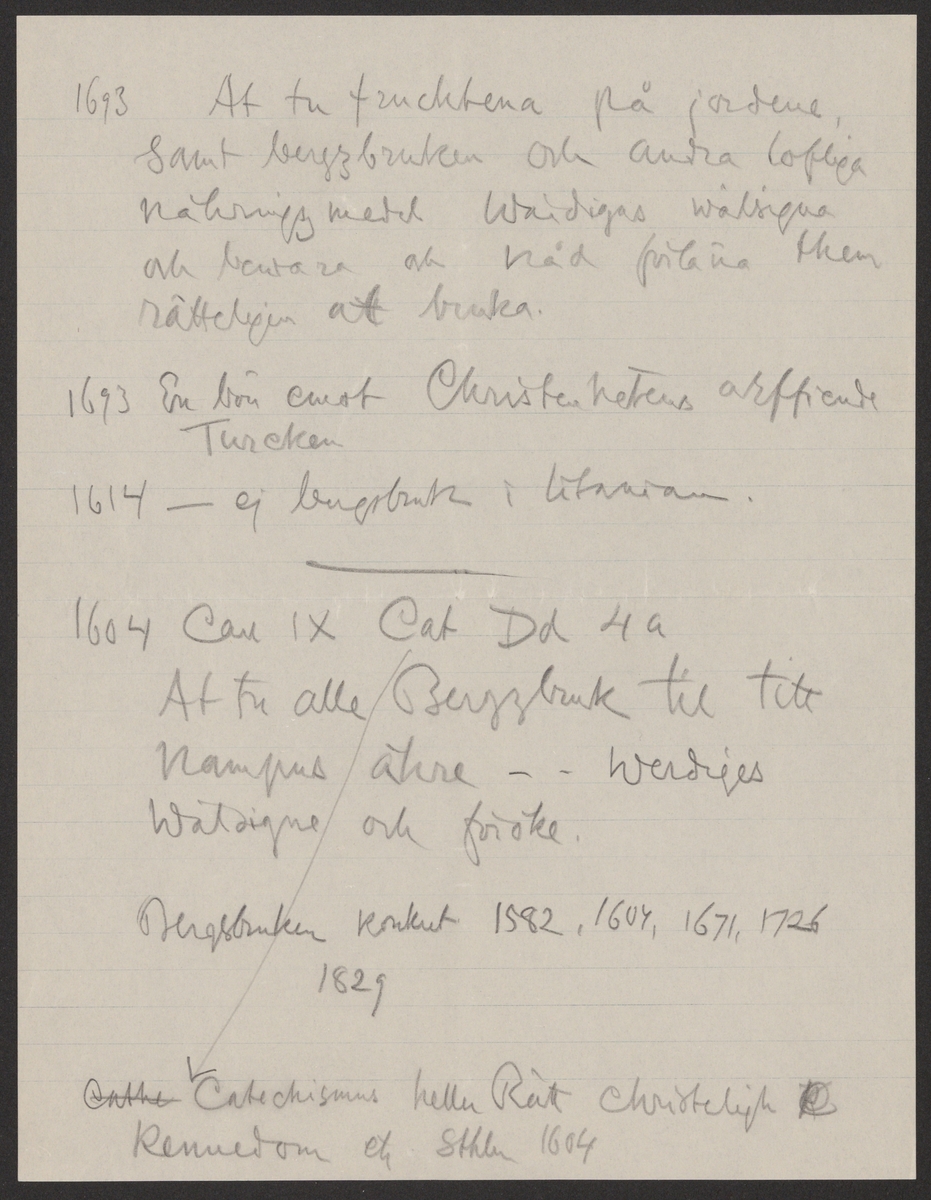 1693 At tu fruchtena på jordene,
samt bergzbruken och andra lofliga
nährings medel wärdigas wälsigna
och bewara och nåd förläna them
rätteligen att bruka.
1693 En bön emot Christenhetens arffiende
Turcken
1614 — ej bergsbruk i litanian.
1604 Carl IX Cat Dd 4a
At tu alle Bergzbruk til titt
Nampns ähre - - werdiges
wälsigne och föröke.
Bergsbruken konkret 1582, 1604, 1671, 1726
1829
Cathe Catechismus heller Rätt Christeligh
Kennedom etc Sthlm 1604